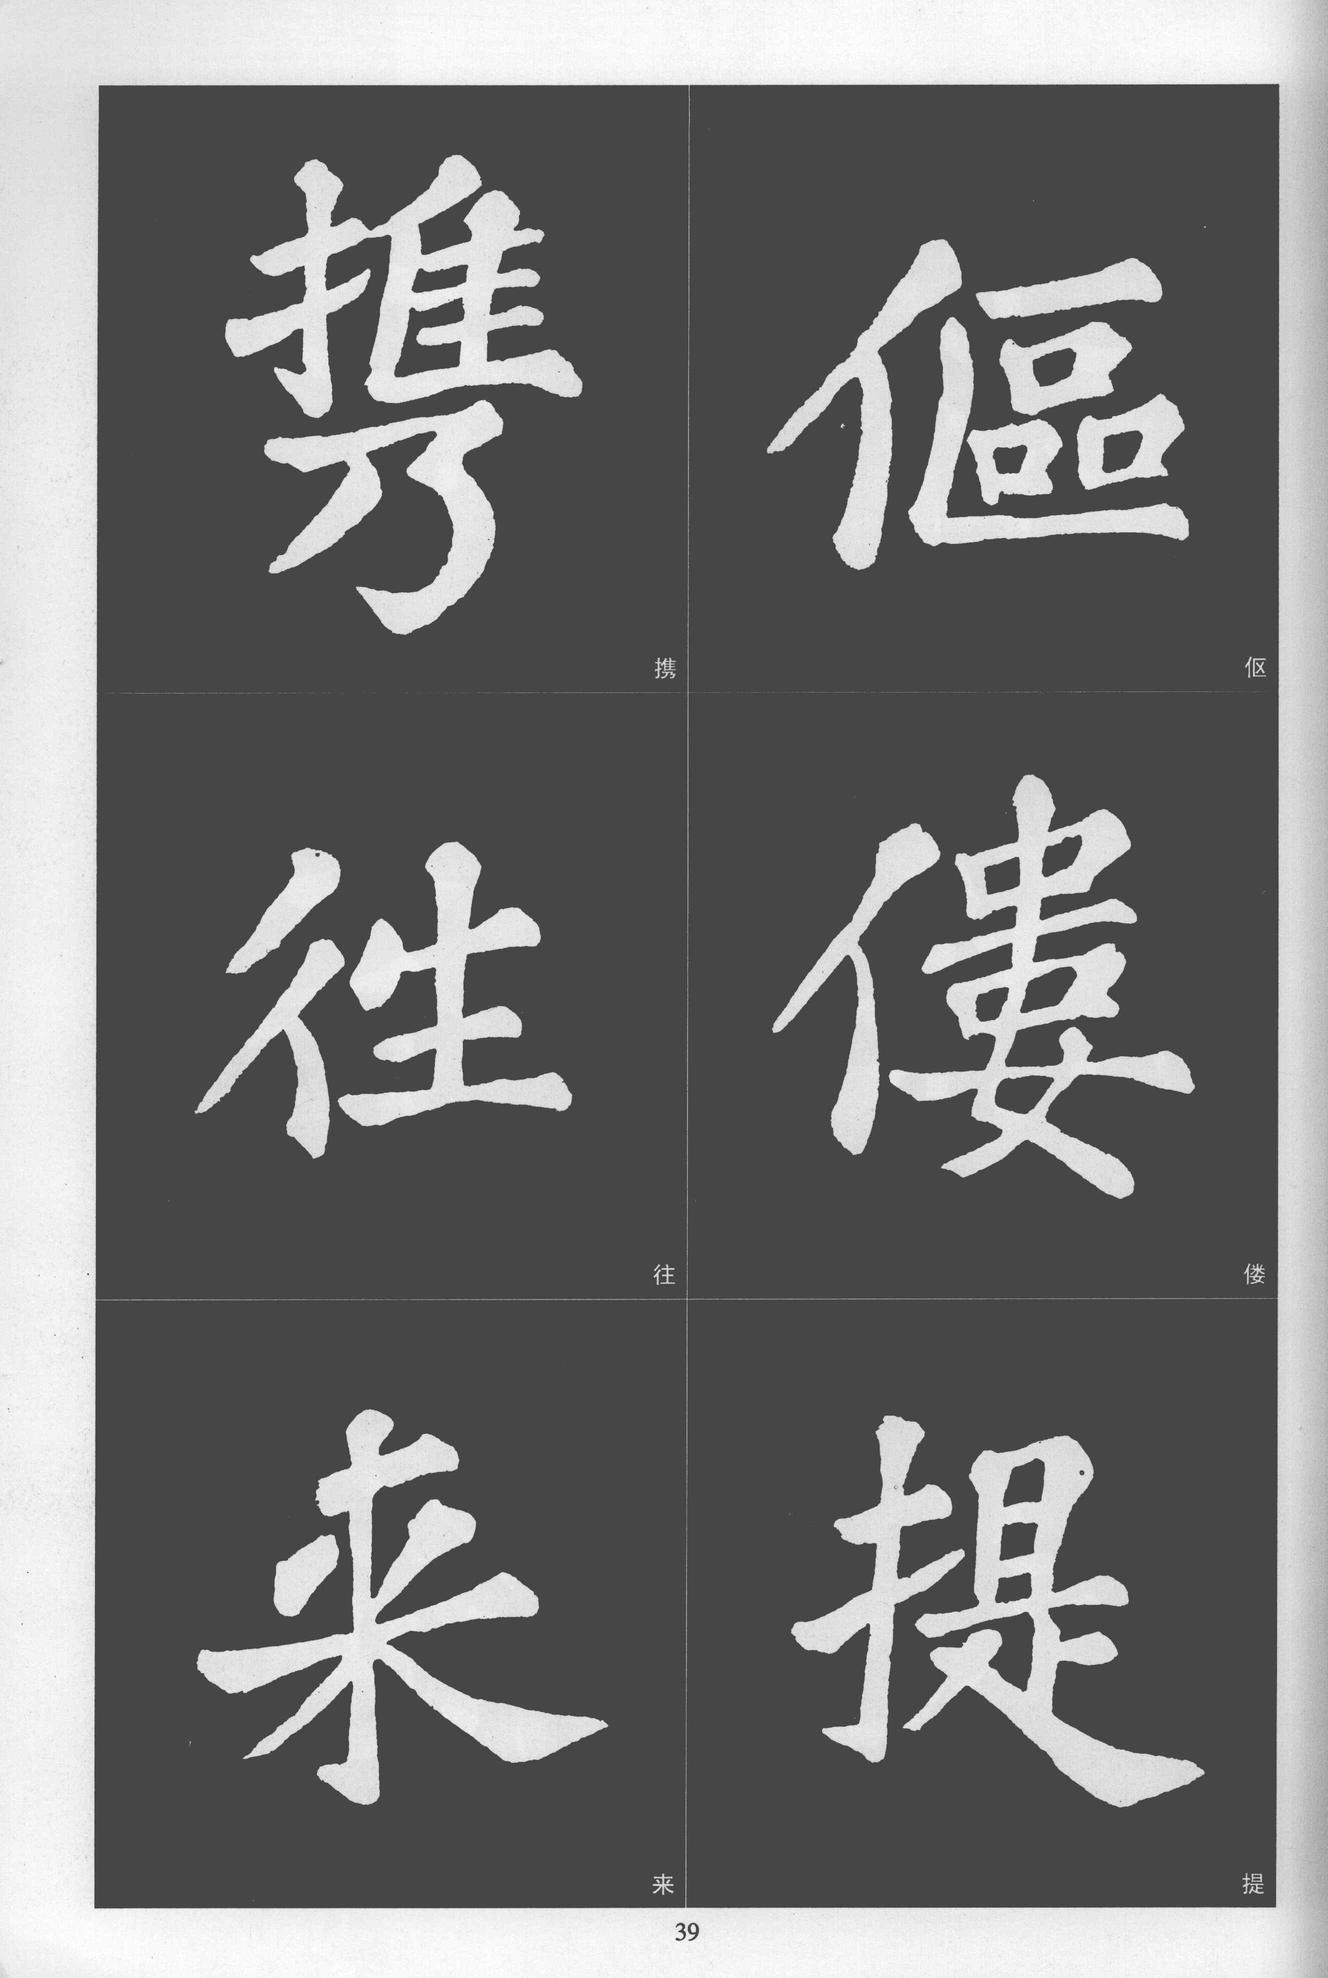 傴 伛
僂 偻
提 提
攜 携
往 往
来 来
39